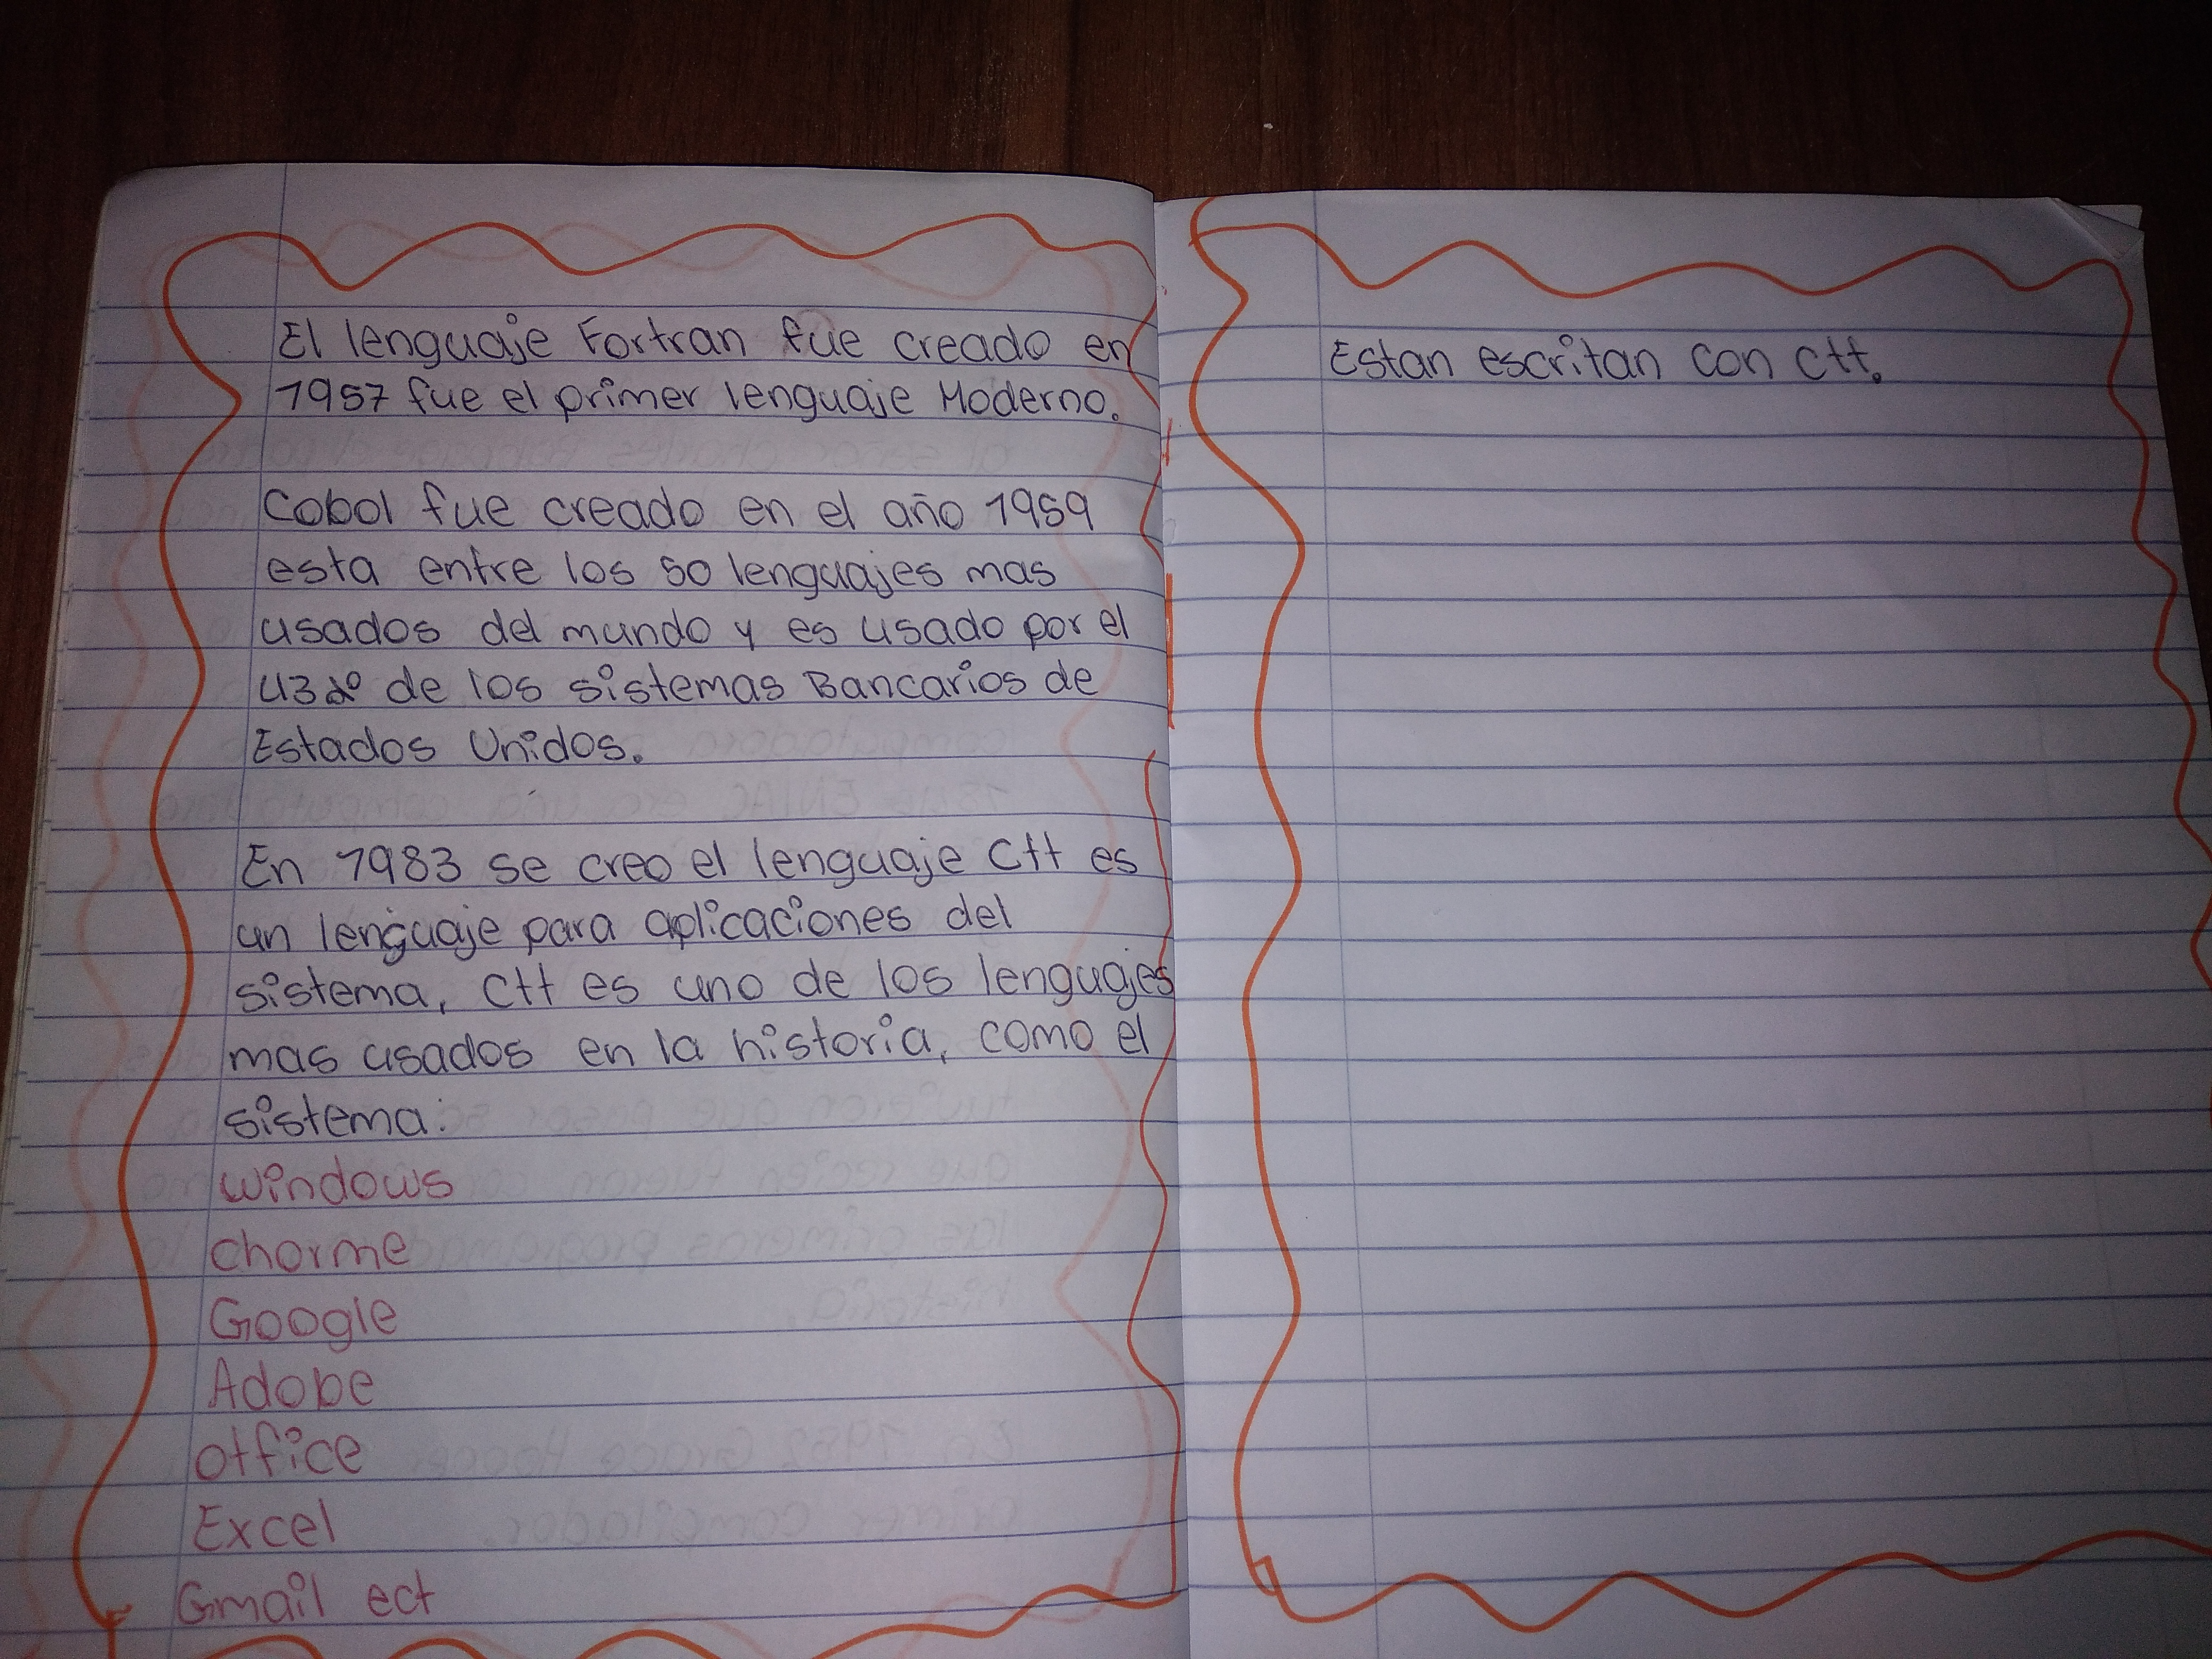 El lenguaje Fortran fue creado en
1957 fue el primer lenguaje Moderno.
Cobol fue creado en el año 1959
esta entre los 50 lenguajes mas
usados del mundo y es usado por el
43% de los sistemas Bancarios de
Estados Unidos.
En 1983 se creo el lenguaje C++ es
un lenguaje para aplicaciones del
sistema, C++ es uno de los lenguajes
mas usados en la historia, como el
sistema:
windows
chorme
Google
Adobe
office
Excel
Gmail ect
Estan escritan con C++.